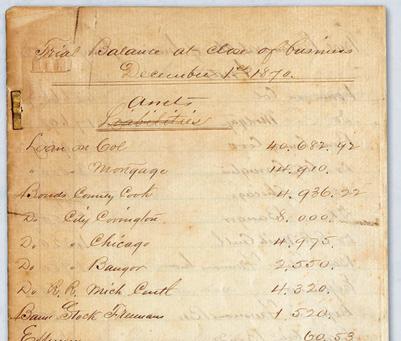 Trial Balance at close of business
December 1st 1870.
Assets
Liabilities
Loan on Col 40.682.92
" Mortgage 14.910.
Bonds County Cook 4.936.22
Do City Covington 8.000.
Do " Chicago 4.975.
Do " Bangor 2.550.
Do R. R. Mich Centl 4.320.
Bank Stock Freemans 1.520.
60.53